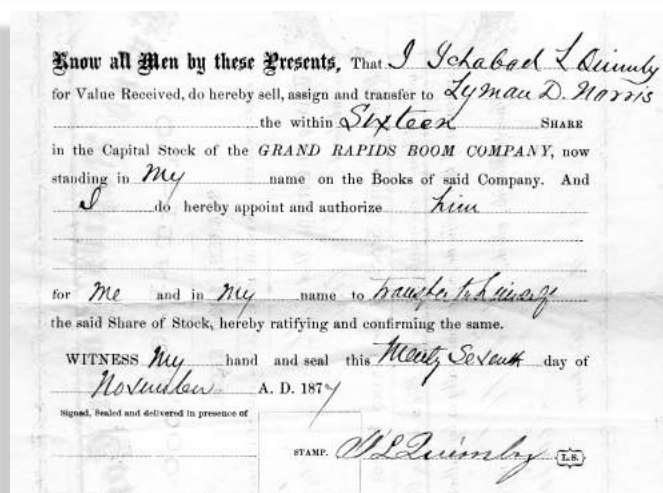 Know all Men by these Presents, That I Ichabod L Quimby
for Value Received, do hereby sell, assign and transfer to Lyman D. Norris
the within Sixteen SHARE
in the Capital Stock of the GRAND RAPIDS BOOM COMPANY, now
standing in My name on the Books of said Company. And
I do hereby appoint and authorize him
for Me and in My name to transfer to himself
the said Share of Stock, hereby ratifying and confirming the same.
WITNESS My hand and seal this Twenty Seventh day of
November A. D. 1877
Signed, Sealed and delivered in presence of
STAMP. I L Quimby L.S.